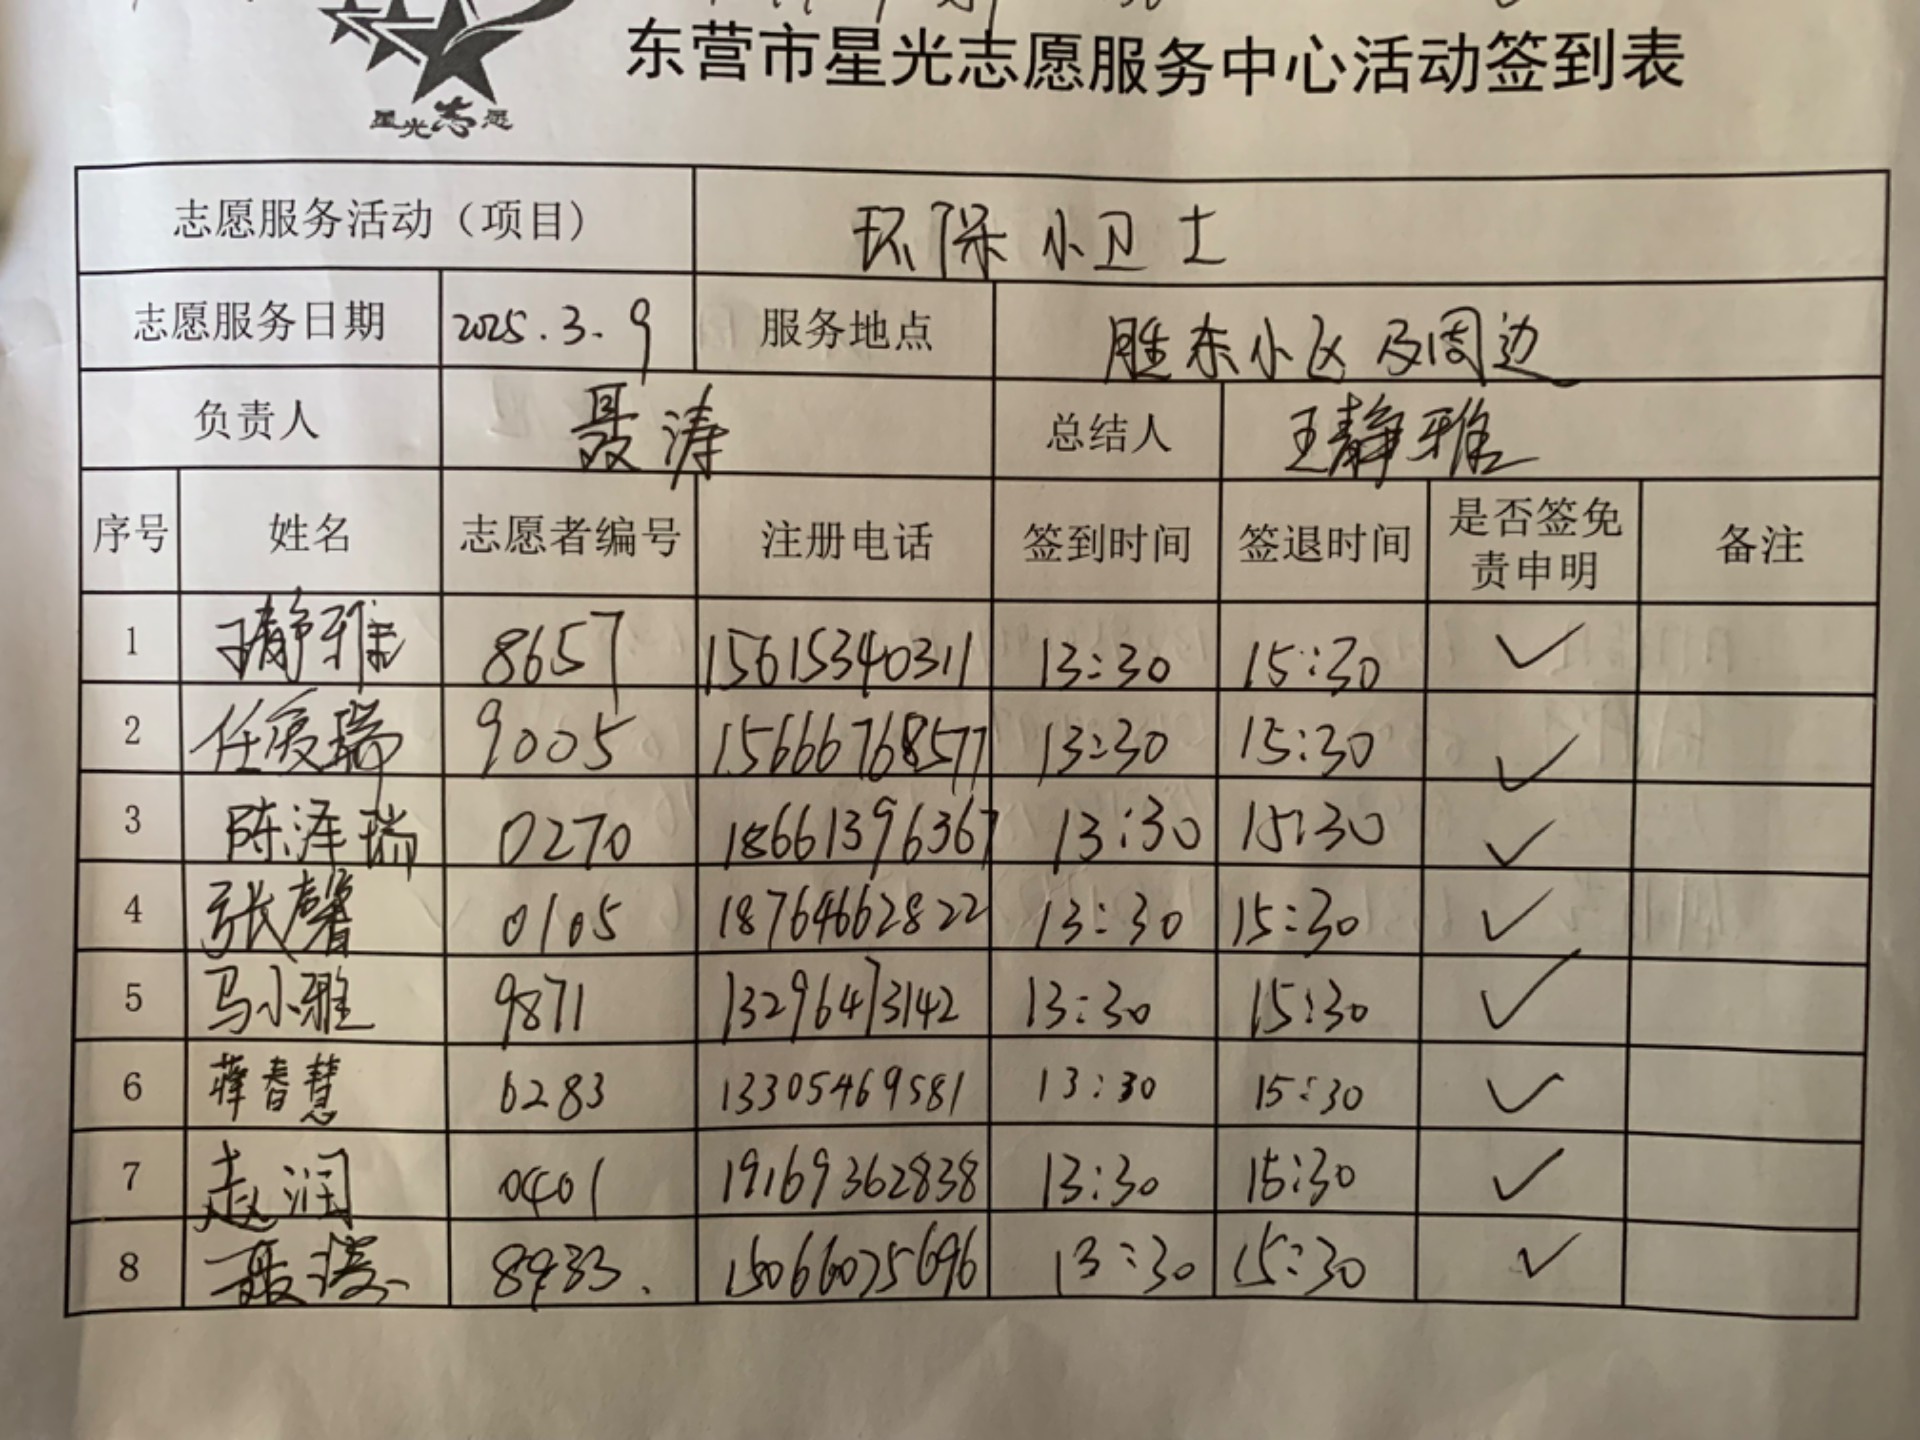 东营市星光志愿服务中心活动签到表
星光志愿
志愿服务活动（项目） 环保小卫士
志愿服务日期 2025.3.9 服务地点 胜东小区及周边
负责人 聂涛 总结人 王静雅
序号 姓名 志愿者编号 注册电话 签到时间 签退时间 是否签免责申明 备注
1 王静雅 8657 15615340311 13:30 15:30 ✓
2 任爱瑞 9005 15666768577 13:30 15:30 ✓
3 陈泽瑞 0270 18661396367 13:30 15:30 ✓
4 张馨 0105 18764662822 13:30 15:30 ✓
5 马小雅 9871 13296473142 13:30 15:30 ✓
6 蒋春慧 0283 13305469581 13:30 15:30 ✓
7 赵润 0401 19169362838 13:30 15:30 ✓
8 聂涛 8933. 15066075696 13:30 15:30 ✓